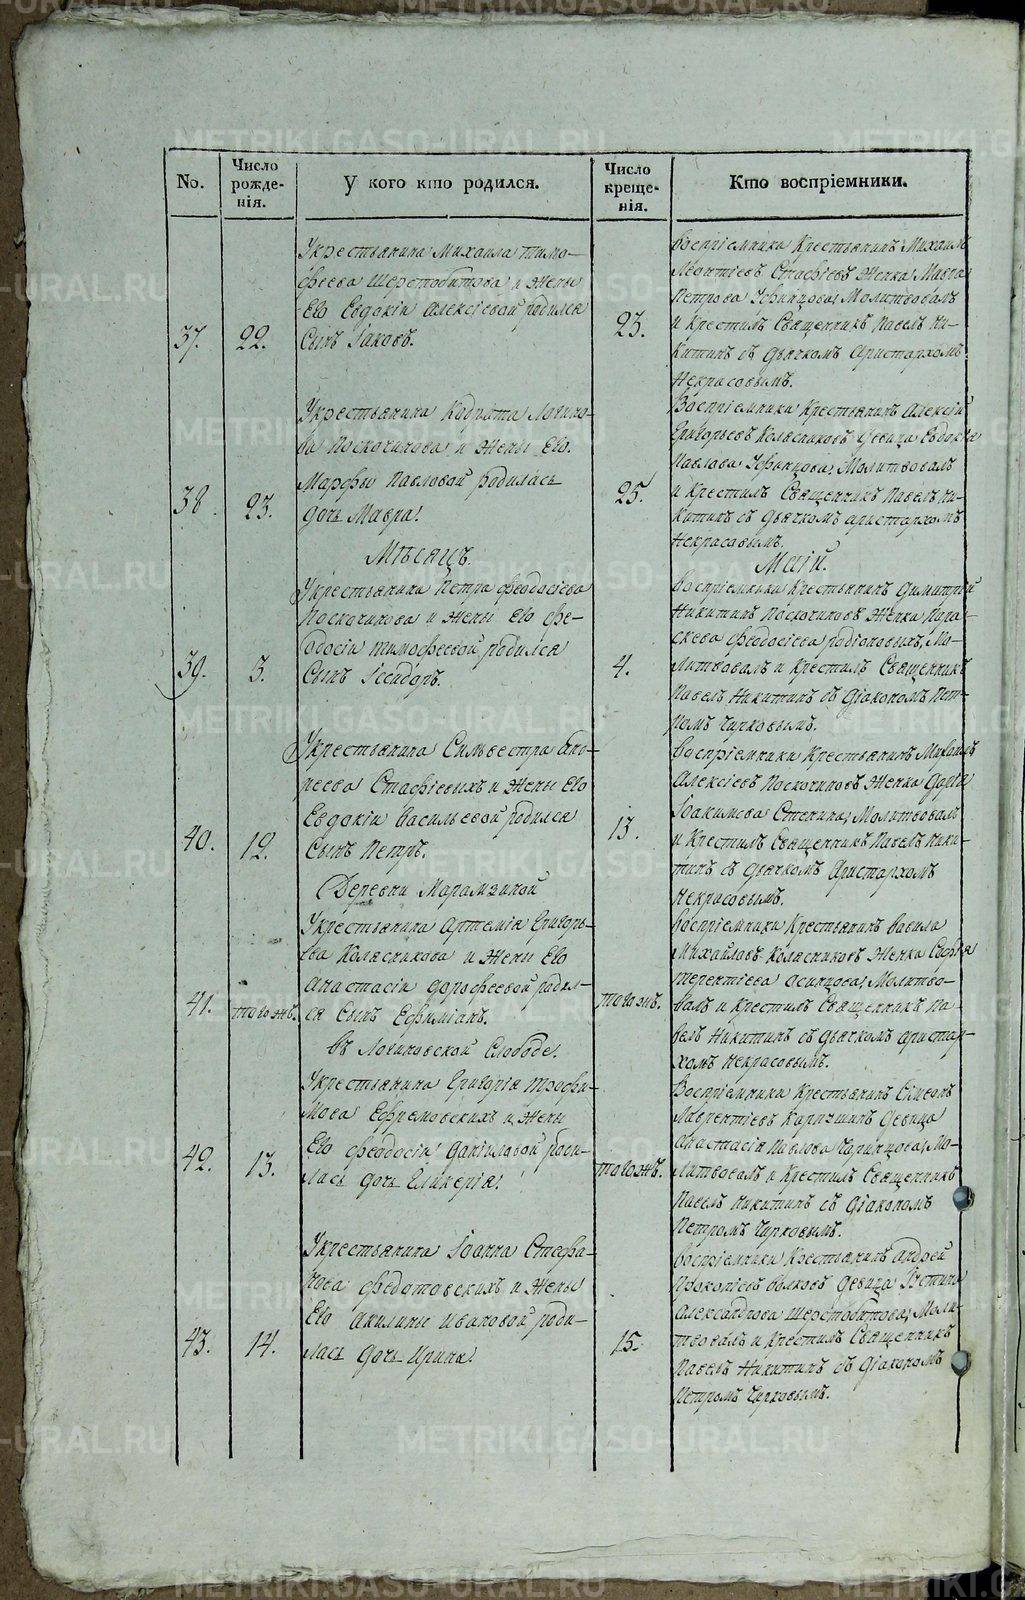 No.
Число рожде- нія.
У кого кто родился.
Число креще- нія.
Кто воспріемники.
37.
22.
У крестьянина Михаила Тимо-
феева Шерстобитова и жены
Его Евдокіи Алексіевой родился
Сынъ Іаковъ.
23.
Воспріемники Крестьянинъ Михаилъ
Леонтіевъ Стафіевъ женка Мавра
Петрова Уфинцова; Молитвовалъ
и Крестилъ Священникъ Павелъ Ни-
китинъ съ Дьячкомъ Аристархомъ
Некрасовымъ.
38.
23.
У крестьянина Кодрата Логино-
ва Поскочинова и жены Его.
Марфы Павловой родилась
дочь Мавра.
25.
Воспріемники Крестьянинъ Алексій
Григорьевъ Колясниковъ Девица Евдокія
Павлова Уфинцова; Молитвовалъ
и Крестилъ Священникъ Павелъ Ни-
китинъ съ Дьячкомъ Аристархомъ
Некрасовымъ.
Мѣсяцъ.
Маій.
39.
3.
У крестьянина Петра Феодосіева
Поскочинова и жены Его Фе-
одосіи Тимофеевой родился
Сынъ Ісидоръ.
4.
Воспріемники Крестьянинъ Димитрій
Никитинъ Поскочиновъ женка Пара-
скева Феодосіева Родіоновыхъ, Мо-
литвовалъ и Крестилъ Священникъ
Павелъ Никитинъ съ Діакономъ Пет-
ромъ Чирковымъ.
40.
12.
У крестьянина Сильвестра
Стафіевыхъ и жены Его
Евдокіи Васильевой родился
Сынъ Петръ.
13.
Воспріемники Крестьянинъ Михаилъ
Алексіевъ Поскочиновъ женка Дарія
Іоакимова Стенина; Молитвовалъ
и Крестилъ Священникъ Павелъ Ники-
тинъ съ Дьячкомъ Аристархомъ
Некрасовымъ.
Деревни Марамзиной
41.
тогожъ.
У крестьянина Артемія Григорь-
ева Колясникова и жены Его
Анастасіи Дорофеевой родил-
ся Сынъ Ефиміанъ.
тогожъ.
Воспріемники Крестьянинъ Вавила
Михайловъ Колясниковъ женка Софья
Терентіева Осинцова; Молитво-
валъ и Крестилъ Священникъ Па-
велъ Никитинъ съ Дьячкомъ Аристар-
хомъ Некрасовымъ.
въ Логиновской Слободе.
42.
13.
У крестьянина Григорія Трофи-
мова Ефремовскихъ и жены
Его Феодосіи Даніиловой роди-
лась дочь Гликерія.
тогожъ.
Воспріемники Крестьянинъ Симеонъ
Лаврентіевъ Девица
Анастасія Павлова Мо-
литвовалъ и Крестилъ Священникъ
Павелъ Никитинъ съ Діакономъ
Петромъ Чирковымъ.
43.
14.
У крестьянина Іоанна Стефа-
нова Федотовскихъ и жены
Его Акилины Ивановой роди-
лась дочь Ирина.
15.
Воспріемники Крестьянинъ Андрей
Прокопіевъ Волковъ Девица Іустина
Александрова Шерстобитова; Моли-
твовалъ и Крестилъ Священникъ
Павелъ Никитинъ съ Діакономъ
Петромъ Чирковымъ.
METRIKI.GASO-URAL.RU